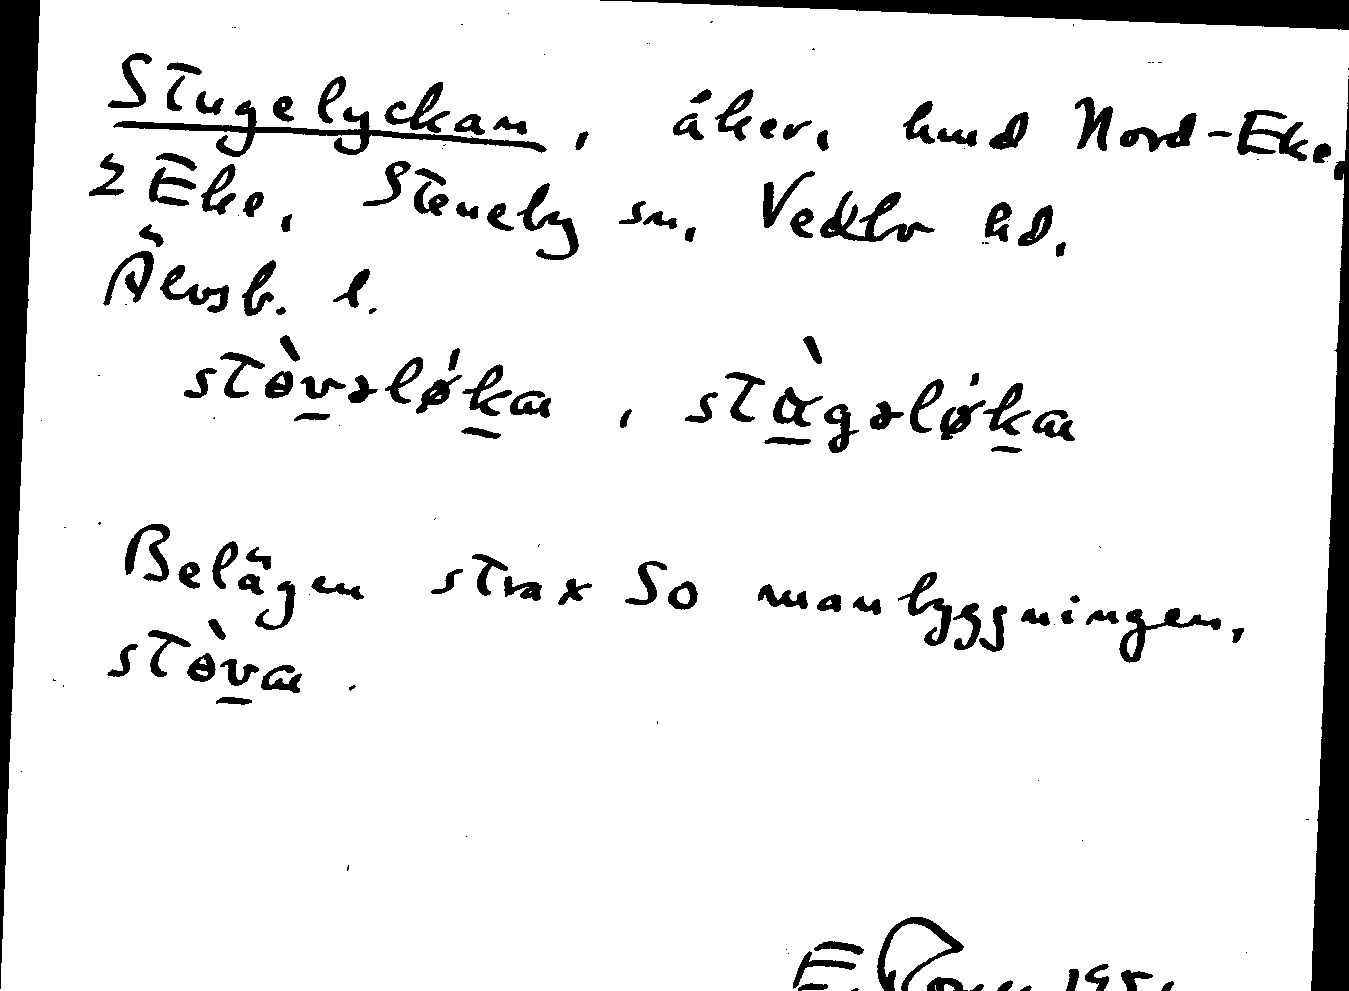 Stugelyckan, åker, hmd Nord-Eke,
2 Eke, Steneby sn, Vedbo hd,
Älvsb. l.
stɵ̀vəlǿkaɩ, stàgəlǿkaɩ
Belägen strax So manbyggningen,
stɵ̀vaɩ.
E.